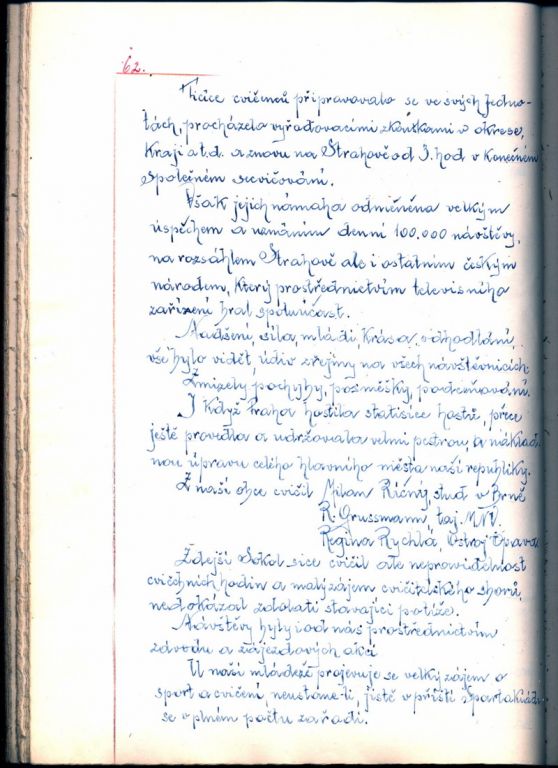 62.
Tisíce cvičenců připravovalo se ve svých jedno-
tách, procházela vyřaďovacími zkouškami v okrese,
kraji a t.d. a znovu na Strahově od 3. hod v konečném
společném secvičování.
Však jejich námaha odměněna velkým
úspěchem a uznáním denní 100.000 návštěvy,
na rozsáhlém Strahově ale i ostatním českým
národem, který prostřednictvím televisního
zařízení hral spoluúčast.
Nadšení, síla, mládí, krása, odhodlání,
vše bylo vidět, údiv zřejmý na všech návštěvnících.
Zmizely pochyby, posměšky, podceňování.
I když Praha hostila statisíce hostů, přece
ještě provedla a udržovala velmi pestrou a náklad-
nou úpravu celého hlavního města naší republiky.
Z naší obce cvičil Milan Říčný, stud. v Brně
R. Grussmann, taj. MNV.
Regina Rychlá, Ostroj Opava
Zdejší Sokol sice cvičil ale nepravidelnost
cvičebních hodin a malý zájem cvičitelského sboru,
nedokázal zdolati stávající potíže.
Návštěvy byly i od nás prostřednictvím
závodu a zájezdových akcí
U naší mládeže projevuje se velký zájem o
sport a cvičení, neustane-li, jistě v příští spartakiádě
se v plném počtu zařadí.